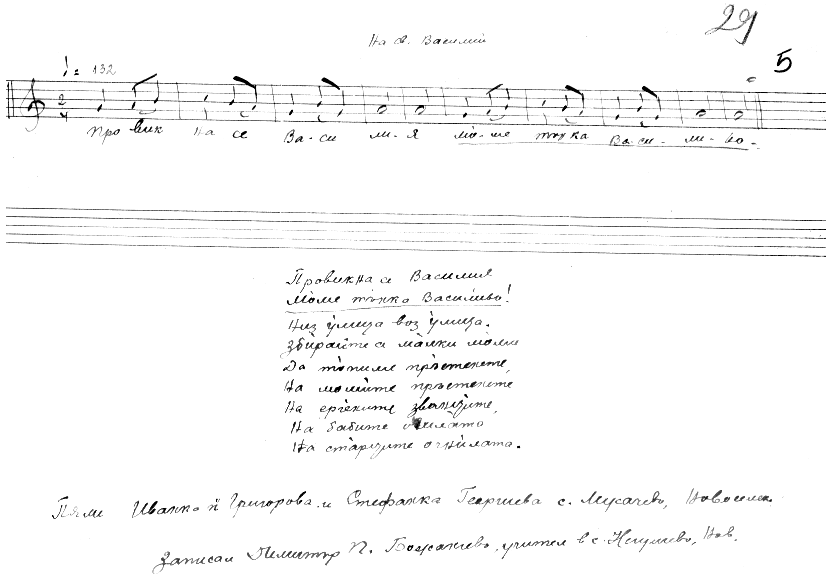 29
На св. Василий
5
♩= 132
2
4
Про вик на се Ва - си ли - я мо - ме тънка Ва - си - ли - во -
Провикна се Василия
моме тънко Василиво!
Низ улица воз улица.
Збирайте се малки моми
Да топиме пръстените,
На момите пръстените
На ергените
На бабите
На старците огнилата.
Пяли Иванка Григорова и Стефанка Георгиева с. Мусачево, Новоселск.
Записал Димитър П. Божанов, учител в с. Негушево, Нов.